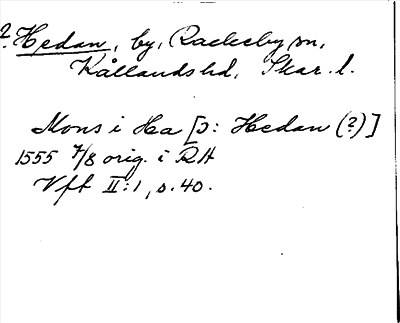 ? Hedan, by, Rackeby sn,
Kållands hd, Skar. l.
Mons i Ha [ɔ: Hedan (?)]
1555 7/8 orig. i RA
Vft II:1, s. 40.